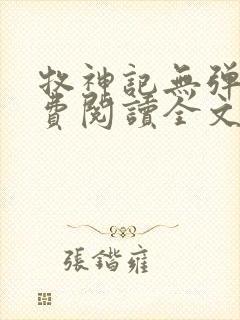 牧神記無彈
費閱讀全文
張鍇雍